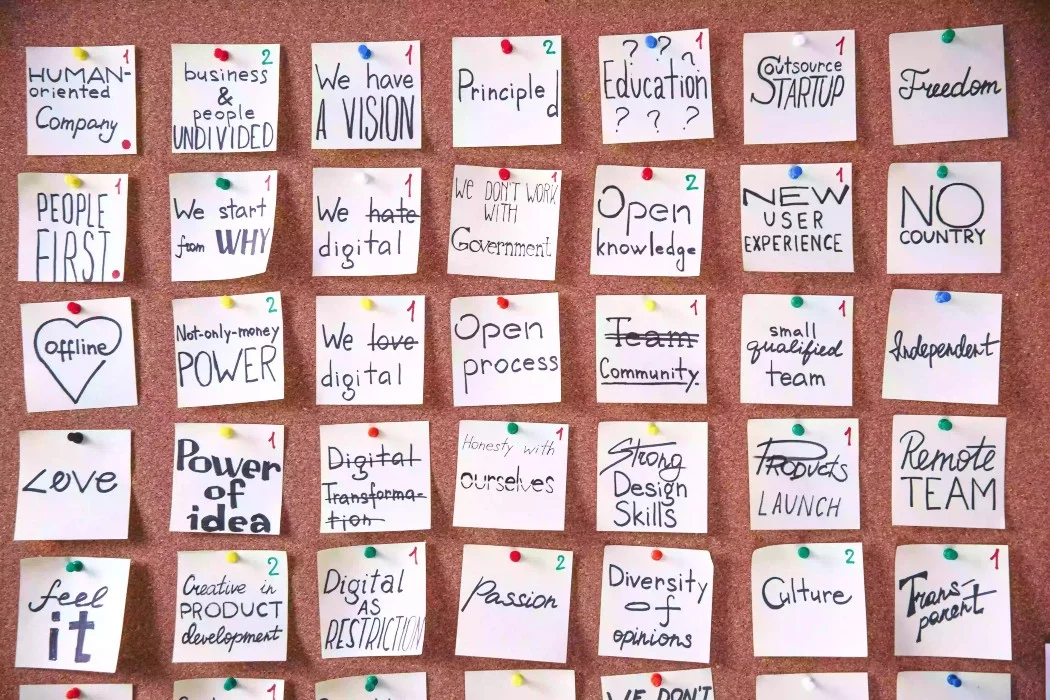 HUMAN-
oriented
Company
1
business
&
people
UNDIVIDED
2
We have
A VISION
1
Principled
2
? ? ?
Education
? ? ?
1
outsource
STARTUP
1
Freedom
PEOPLE
FIRST
1
We start
from WHY
1
We hate
digital
1
We DON'T WORK
WITH
Government
1
Open
knowledge
2
NEW
USER
EXPERIENCE
1
NO
COUNTRY
offline
Not-only-money
POWER
2
We love
digital
1
Open
process
Team
Community
1
small
qualified
team
1
Independent
Love
Power
of
idea
1
Digital
Transforma-
tion
Honesty with
ourselves
1
Strong
Design
Skills
Products
LAUNCH
1
Remote
TEAM
feel
it
Creative in
PRODUCT
development
2
Digital
AS
RESTRICTION
1
Passion
2
Diversity
of
opinions
Culture
2
Trans-
parent
1
1
WE DON'T